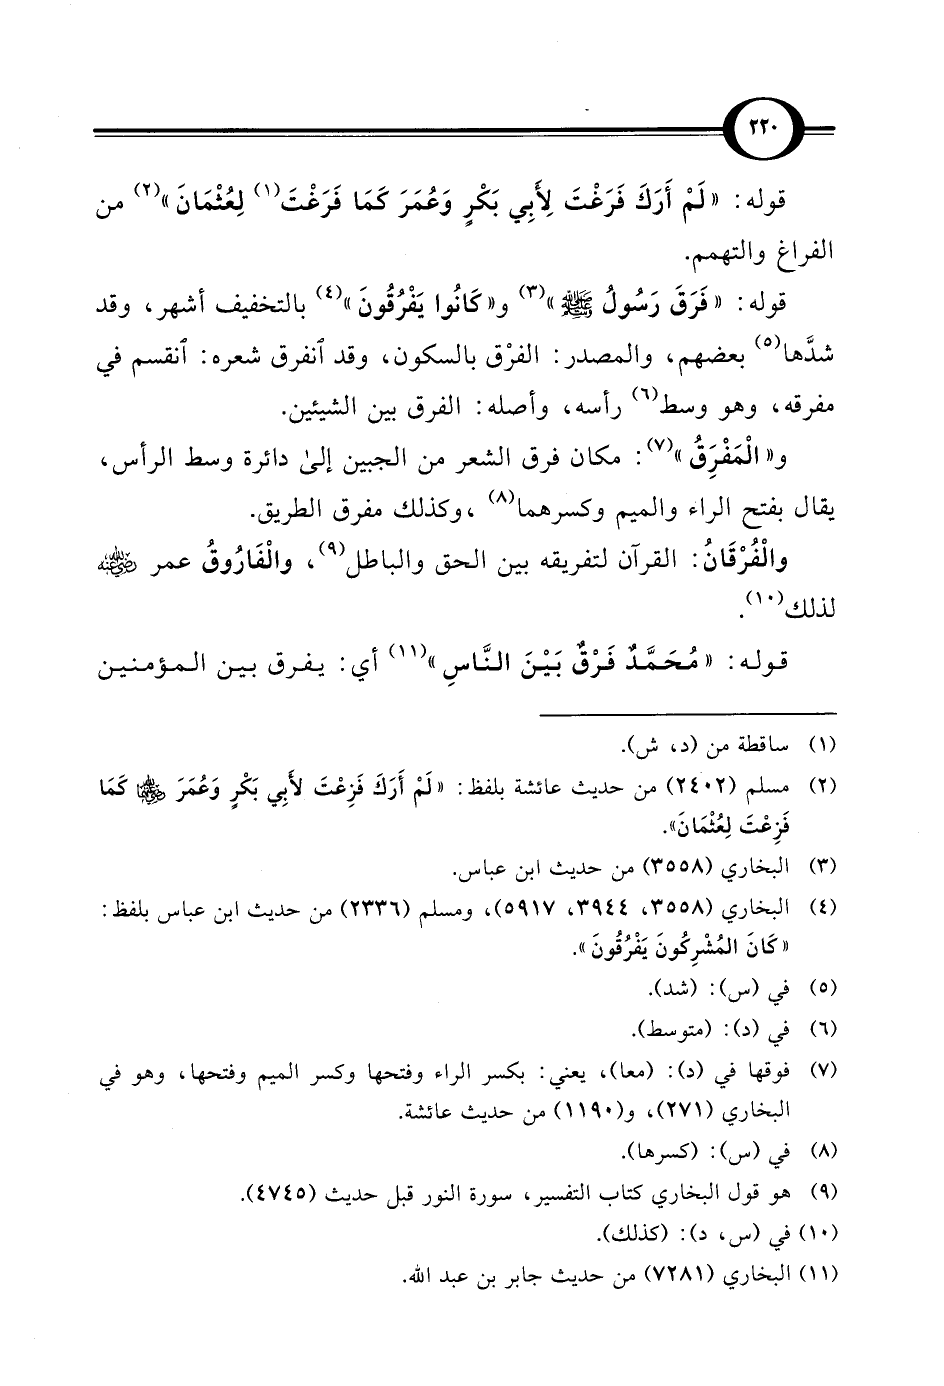 ٢٢٠
قوله: «لَمْ أَرَكَ فَرَغْتَ لِأَبِي بَكْرٍ وَعُمَرَ كَمَا فَرَغْتَ(١) لِعُثْمَانَ»(٢) من
الفراغ والتهمم.
قوله: «فَرَقَ رَسُولُ ﷺ»(٣) و«كَانُوا يَفْرُقُونَ»(٤) بالتخفيف أشهر، وقد
شدَّها(٥) بعضهم، والمصدر: الفرْق بالسكون، وقد ٱنفرق شعره: ٱنقسم في
مفرقه، وهو وسط(٦) رأسه، وأصله: الفرق بين الشيئين.
و«الْمَفْرِقُ»(٧): مكان فرق الشعر من الجبين إلىٰ دائرة وسط الرأس،
يقال بفتح الراء والميم وكسرهما(٨)، وكذلك مفرق الطريق.
والْفُرْقَانُ: القرآن لتفريقه بين الحق والباطل(٩)، والْفَارُوقُ عمر رضي الله عنه
لذلك(١٠).
قوله: «مُحَمَّدٌ فَرْقٌ بَيْنَ النَّاسِ»(١١) أي: يفرق بين المؤمنين
(١) ساقطة من (د، ش).
(٢) مسلم (٢٤٠٢) من حديث عائشة بلفظ: «لَمْ أَرَكَ فَزِعْتَ لأَبِي بَكْرٍ وَعُمَرَ رضي الله عنهما كَمَا
فَزِعْتَ لِعُثْمَانَ».
(٣) البخاري (٣٥٥٨) من حديث ابن عباس.
(٤) البخاري (٣٥٥٨، ٣٩٤٤، ٥٩١٧)، ومسلم (٢٣٣٦) من حديث ابن عباس بلفظ:
«كَانَ المُشْرِكُونَ يَفْرُقُونَ».
(٥) في (س): (شد).
(٦) في (د): (متوسط).
(٧) فوقها في (د): (معا)، يعني: بكسر الراء وفتحها وكسر الميم وفتحها، وهو في
البخاري (٢٧١)، و(١١٩٠) من حديث عائشة.
(٨) في (س): (كسرها).
(٩) هو قول البخاري كتاب التفسير، سورة النور قبل حديث (٤٧٤٥).
(١٠) في (س، د): (كذلك).
(١١) البخاري (٧٢٨١) من حديث جابر بن عبد الله.